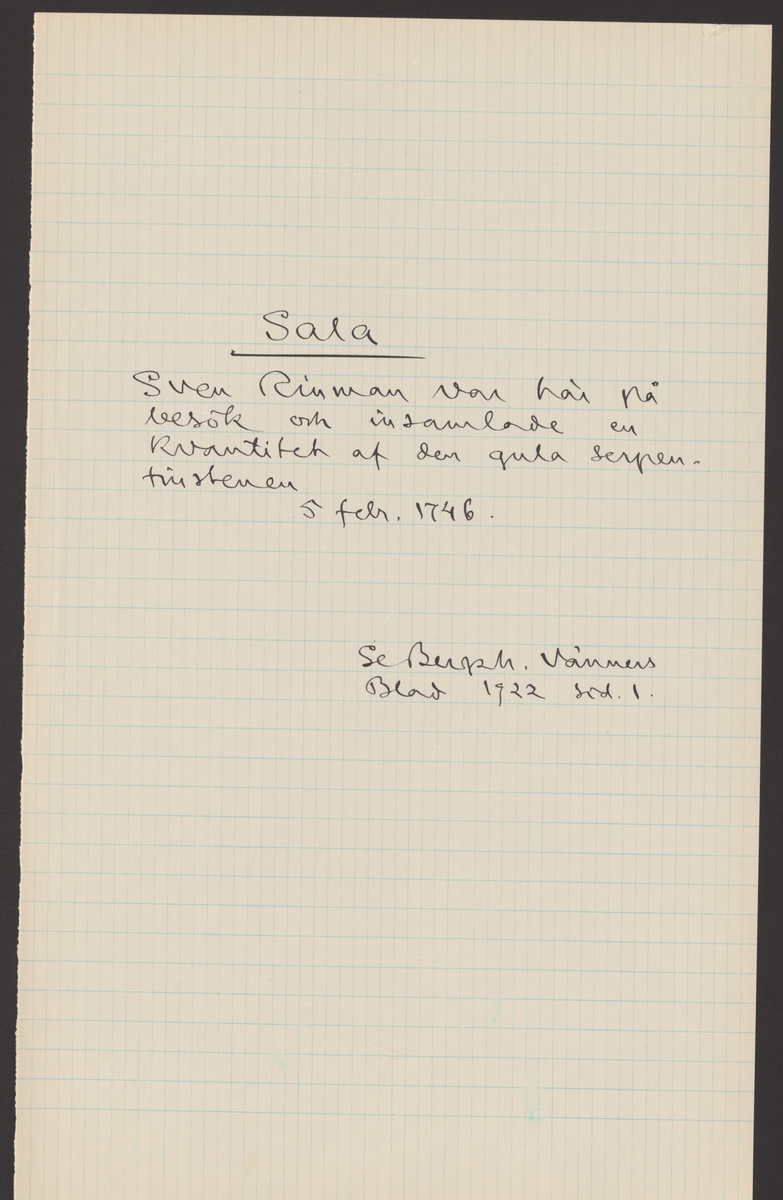 Sala
Sven Rinman var här på
besök och insamlade en
kvantitet af den gula serpen-
tinstenen
5 febr. 1746.
Se Bergsh. Vänners
Blad 1922 sid. 1.